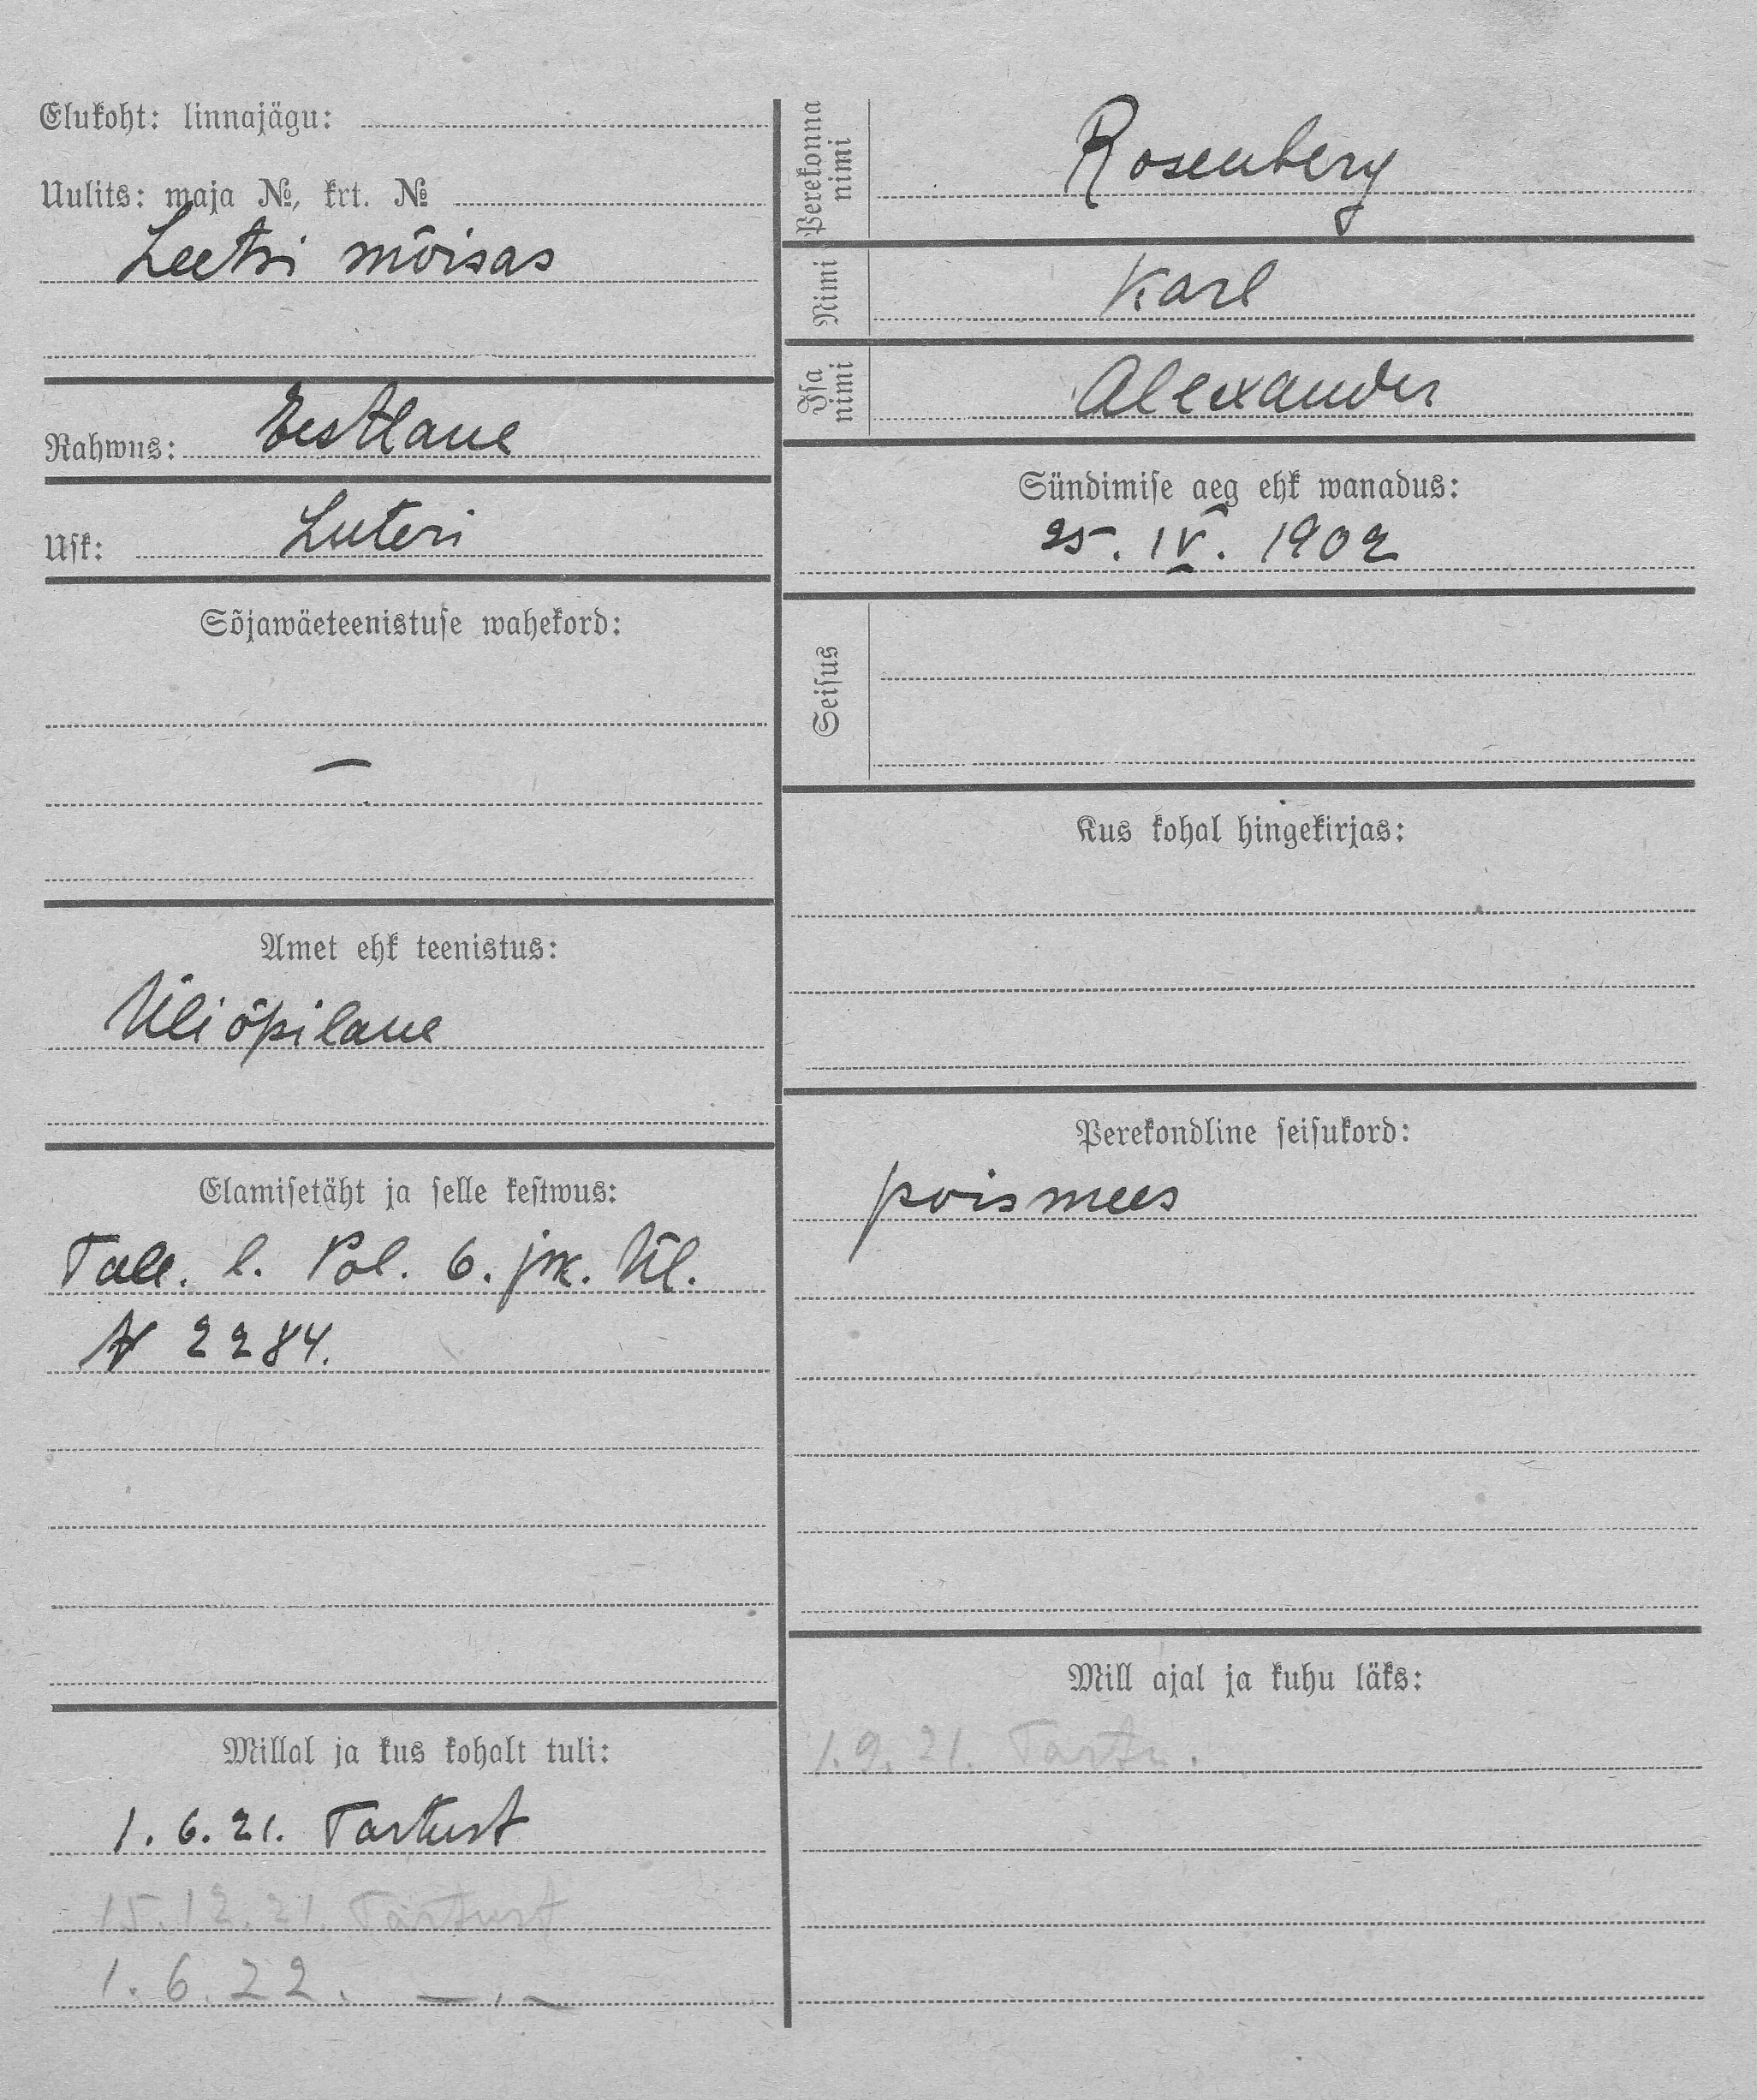 Elukoht: linnajägu:
Uulits: maja №, krt. №
Leetri mõisas
Rahwus: Eestlane
Usk: Luteri
Sõjawäeteenistuse wahekord:
—
Amet ehk teenistus:
Üliõpilane
Elamisetäht ja selle kestwus:
Tall. l. Pol. 6. jsk. Ül.
№ 2284.
Millal ja kus kohalt tuli:
1.6.21. Tartust
15.12.21. Tartust
1.6.22. —„—
Perekonna nimi
Rosenberg
Nimi
Karl
Isa nimi
Alexander
Sündimise aeg ehk wanadus:
25. IV. 1902
Seisus
Kus kohal hingekirjas:
Perekondline seisukord:
poismees
Mill ajal ja kuhu läks:
1.9.21. Tartu.